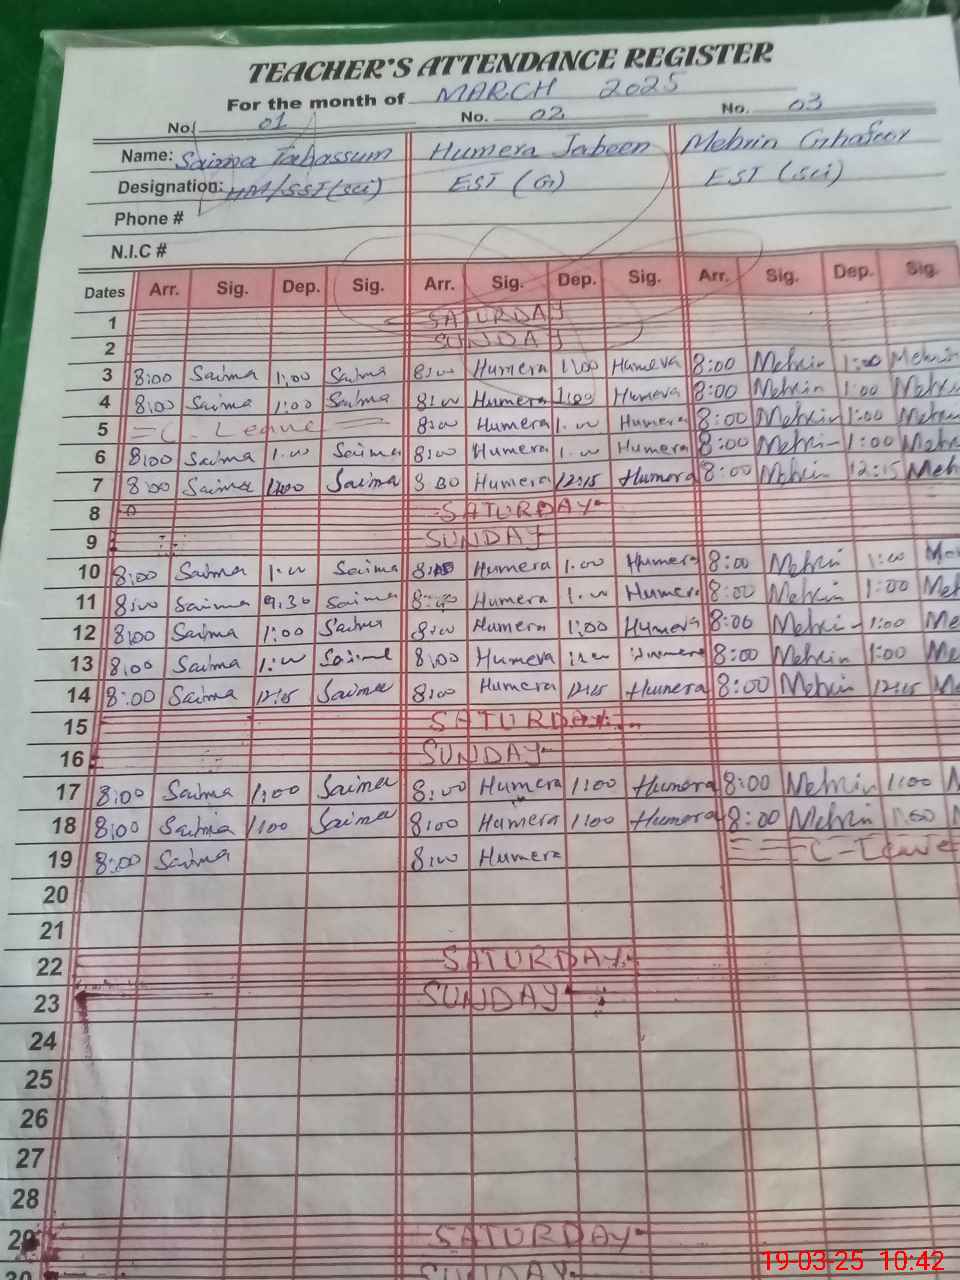 TEACHER'S ATTENDANCE REGISTER
For the month of MARCH 2025
No. 01 No. 02 No. 03
Name: Saima Tabassum Humera Jabeen Mehrin Ghafoor
Designation: HM/SST(sci) EST (G) EST (sci)
Phone #
N.I.C #
Dates Arr. Sig. Dep. Sig. Arr. Sig. Dep. Sig. Arr. Sig. Dep. Sig.
1 SATURDAY
2 SUNDAY
3 8:00 Saima 1:00 Saima 8:00 Humera 1:00 Humera 8:00 Mehrin 1:00 Mehrin
4 8:00 Saima 1:00 Saima 8:00 Humera 1:00 Humera 8:00 Mehrin 1:00 Mehrin
5 C. Leave 8:00 Humera 1:00 Humera 8:00 Mehrin 1:00 Mehrin
6 8:00 Saima 1:00 Saima 8:00 Humera 1:00 Humera 8:00 Mehrin 1:00 Mehr
7 8:00 Saima Saima 8:00 Humera 12:15 Humera 8:00 Mehrin 12:15 Meh
8 SATURDAY
9 SUNDAY
10 8:00 Saima 1:00 Saima Humera 1:00 Humera 8:00 Mehrin 1:00 Me
11 8:00 Saima 9:30 Saima Humera 1:00 Humera 8:00 Mehrin 1:00 Me
12 8:00 Saima 1:00 Saima 8:00 Humera 1:00 Humera 8:00 Mehrin 1:00 Me
13 8:00 Saima 1:00 Saima 8:00 Humera 1:00 Humera 8:00 Mehrin 1:00 Me
14 8:00 Saima 12:15 Saima 8:00 Humera 12:15 Humera 8:00 Mehrin 12:15 M
15 SATURDAY
16 SUNDAY
17 8:00 Saima 1:00 Saima 8:00 Humera 1:00 Humera 8:00 Mehrin 1:00 M
18 8:00 Saima 1:00 Saima 8:00 Humera 1:00 Humera 8:00 Mehrin 1:00 M
19 8:00 Saima 8:00 Humera C-Leave
20
21
22 SATURDAY
23 SUNDAY
24
25
26
27
28
29 SATURDAY
30 SUNDAY
19-03-25 10:42